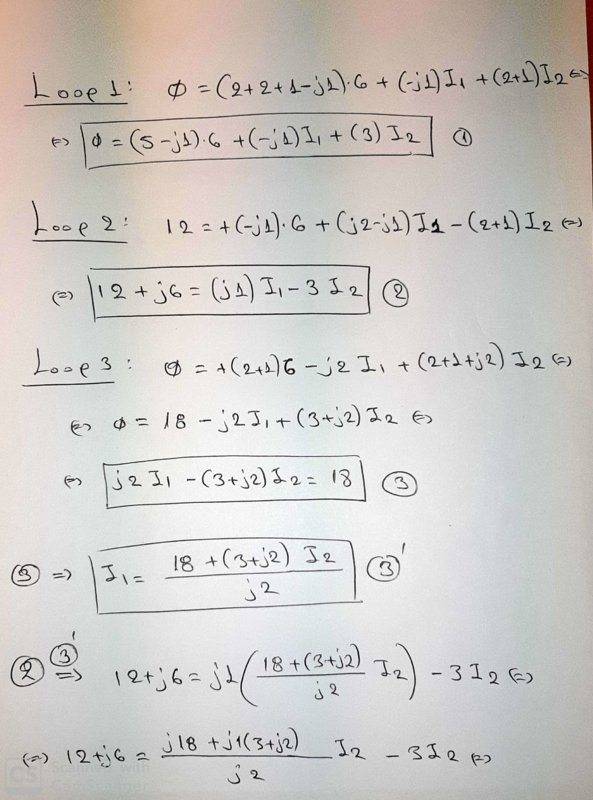 Loop 1: 0 = (2+2+1-j1)·6 + (-j1)I₁ + (2+1)I₂ ⇔
⇔ 0 = (5-j1)·6 + (-j1)I₁ + (3)I₂ ①
Loop 2: 12 = +(-j1)·6 + (j2-j1)I1 - (2+1)I₂ ⇔
⇔ 12 + j6 = (j1)I₁ - 3I₂ ②
Loop 3: 0 = +(2+1)6 - j2I₁ + (2+1+j2)I₂ ⇔
⇔ 0 = 18 - j2I₁ + (3+j2)I₂ ⇔
⇔ j2I₁ - (3+j2)I₂ = 18 ③
③ ⇒ I₁ = (18 + (3+j2) I₂) / j2 ③'
② ③' ⇒ 12+j6 = j1 ( (18+(3+j2)) / j2 I₂ ) - 3I₂ ⇔
⇔ 12+j6 = (j18 + j1(3+j2)) / j2 I₂ - 3I₂ ⇔
CS